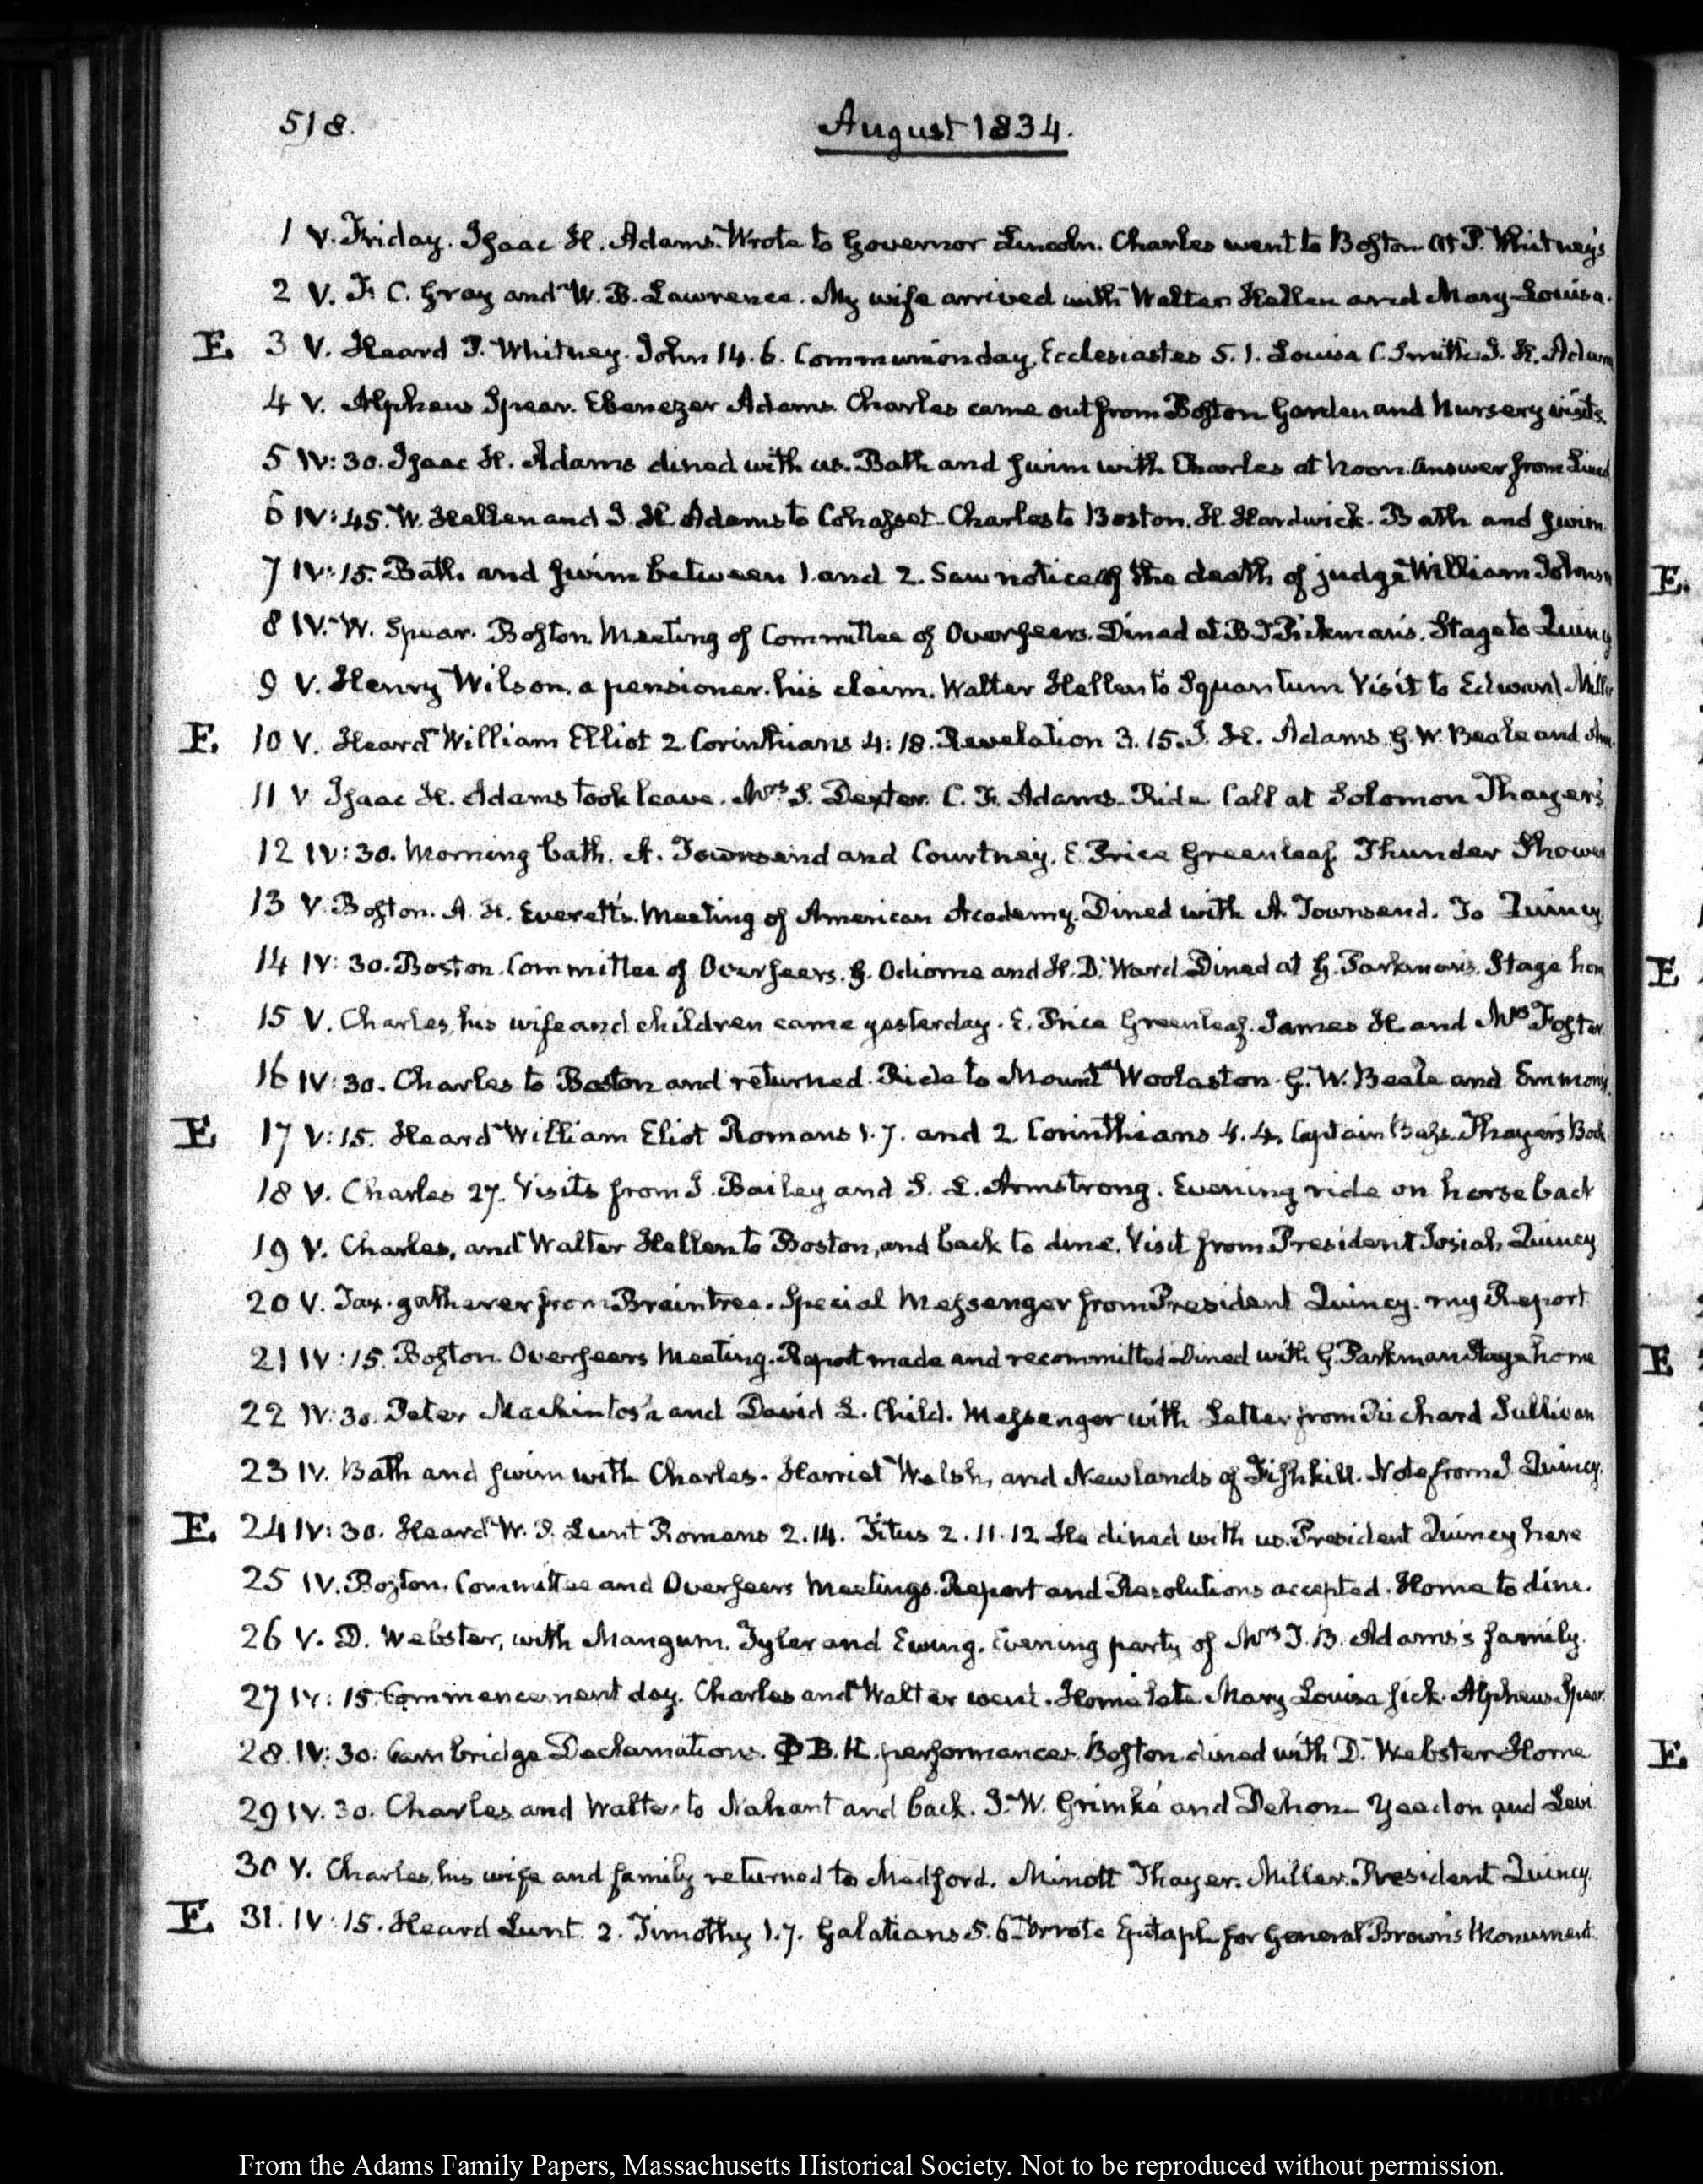 518.
August 1834.
1 V. Friday. Isaac H. Adams. Wrote to Governor Lincoln. Charles went to Boston. At P. Whitney's
2 V. F. C. Gray and W. B. Lawrence. My wife arrived with Walter Hellen and Mary-Louisa.
E. 3 V. Heard P. Whitney. John 14. 6. Communion day, Ecclesiastes 5. 1. Louisa C. Smith. I. H. Adam
4 V. Alpheus Spear. Ebenezer Adams. Charles came out from Boston Garden and Nursery visits.
5 IV: 30. Isaac H. Adams dined with us. Bath and swim with Charles at Noon. Answer from
6 IV: 45. W. Hellen and I. H. Adams to Cohasset. Charles to Boston. H. Hardwick. Bath and swim.
7 IV: 15. Bath and swim between 1 and 2. Saw notice of the death of judge William Johnson
8 IV. W. Spear. Boston Meeting of Committee of Overseers. Dined at B. T. Pickman's. Stage to Quincy
9 V. Henry Wilson, a pensioner. his claim. Walter Hellen to Squantum Visit to Edward Miller
E. 10 V. Heard William Elliot 2 Corinthians 4: 18. Revelation 3. 15. I. H. Adams. G. W. Beale and
11 V Isaac H. Adams took leave. Mrs S. Dexter. C. F. Adams. Ride. Call at Solomon Thayer's
12 IV: 30. Morning bath. A. Townsend and Courtney. E. Price Greenleaf. Thunder Shower
13 V. Boston. A. H. Everett's. Meeting of American Academy. Dined with A. Townsend. To Quincy
14 IV: 30. Boston. Committee of Overseers. G. Odiorne and H. D. Ward Dined at G. Parkman's. Stage hom
15 V. Charles, his wife and children came yesterday. E. Price Greenleaf. James H. and Mrs Foster
16 IV: 30. Charles to Boston and returned. Ride to Mount Woolaston. G. W. Beale and Emmons
E. 17 V: 15. Heard William Eliot Romans 1. 7. and 2 Corinthians 4. 4. Captain Bass. Thayer's Book
18 V. Charles 27. Visits from J. Bailey and S. L. Armstrong. Evening ride on horse back
19 V. Charles, and Walter Hellen to Boston, and back to dine. Visit from President Josiah Quincy
20 V. Tax-gatherer from Braintree. Special Messenger from President Quincy. my Report
21 IV: 15. Boston. Overseers Meeting. Report made and recommitted Dined with G. Parkman Stage home
22 IV: 30. Peter Mackintosh and David L. Child. Messenger with Letter from Richard Sullivan
23 IV. Bath and swim with Charles. Harriet Welsh, and Newlands of Fishkill. Note from J. Quincy.
E. 24 IV: 30. Heard W. P. Lunt Romans 2. 14. Titus 2. 11. 12 He dined with us. President Quincy here
25 IV. Boston. Committee and Overseers Meetings. Report and Resolutions accepted. Home to dine.
26 V. D. Webster, with Mangum, Tyler and Ewing. Evening party of Mrs T. B. Adams's family.
27 IV: 15. Commencement day. Charles and Walter went. Home late. Mary Louisa sick. Alpheus Spear.
28 IV: 30. Cambridge Declamations. Φ B. K. performances. Boston. dined with D. Webster Home
29 IV. 30. Charles and Walter to Nahant and back. J. W. Grimké and Dehon Yeadon and Levi
30 V. Charles, his wife and family returned to Medford. Minott Thayer. Miller. President Quincy.
E. 31. IV: 15. Heard Lunt. 2. Timothy 1. 7. Galatians 5. 6 Wrote Epitaph for General Brown's Monument.
E.
E
E
E.
From the Adams Family Papers, Massachusetts Historical Society. Not to be reproduced without permission.